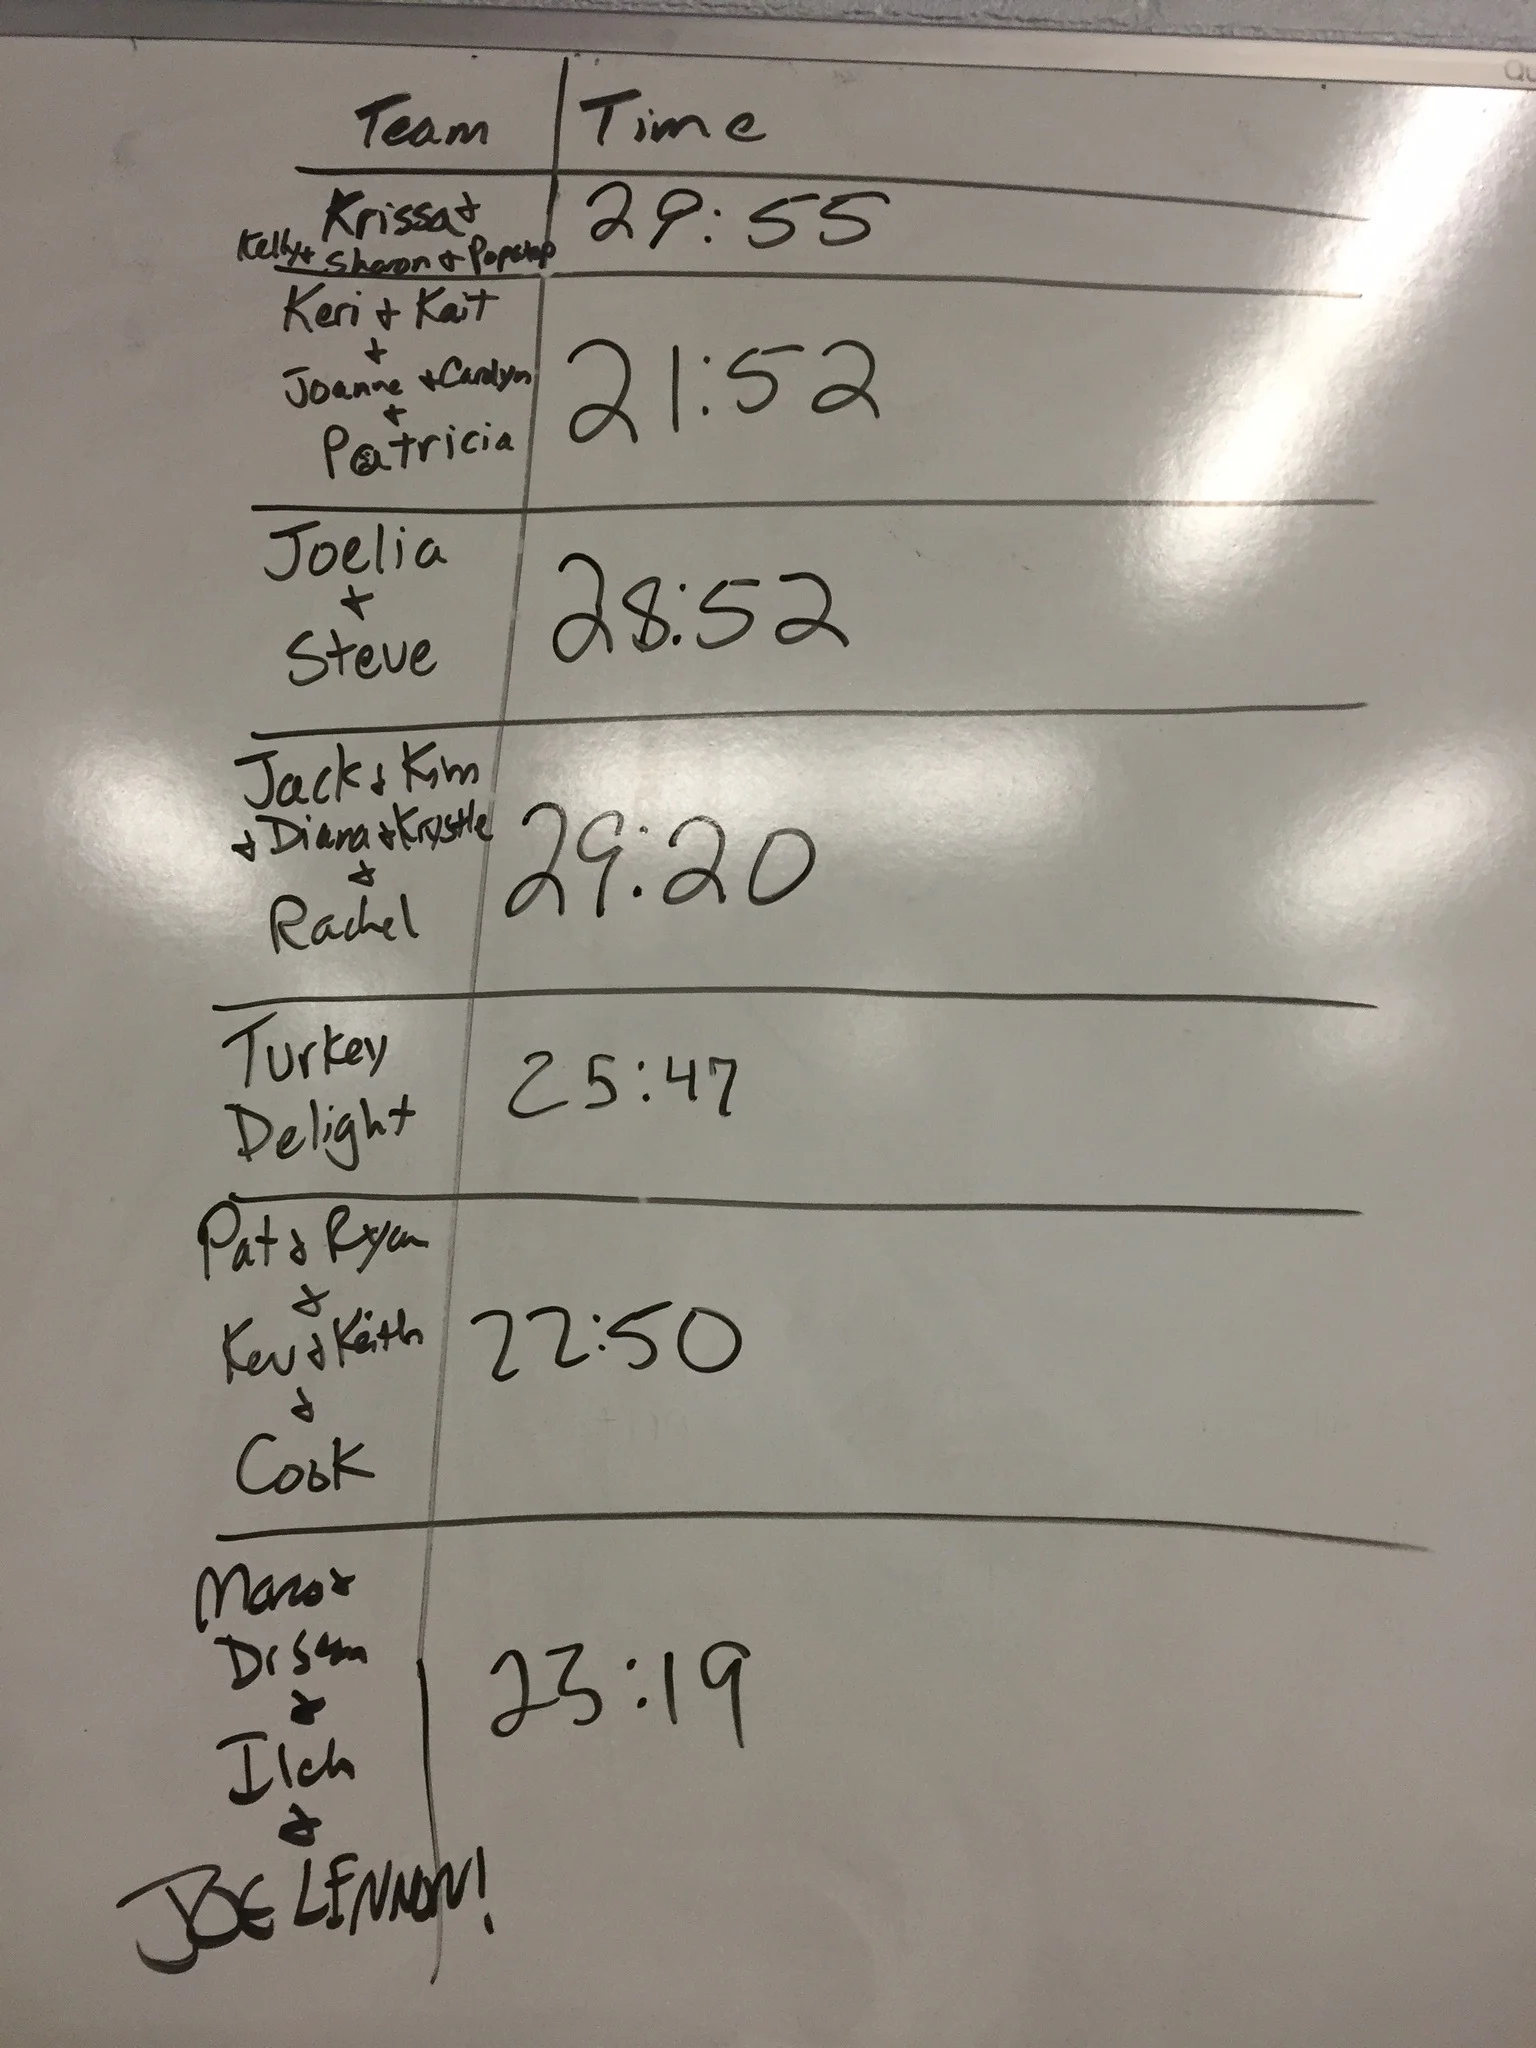 Qu
Team Time
Krissa +
Kelly + Sharon + Popstop 29:55
Keri + Kait
+
Joanne + Carolyn 21:52
+
Patricia
Joelia
+ 28:52
Steve
Jack + Kim
+ Diana + Krystle 29:20
+
Rachel
Turkey 25:47
Delight
Pat + Ryan
+
Kev + Keith 22:50
+
Cook
+
Dr Sam 23:19
+
Ilch
+
JOE LENNON!